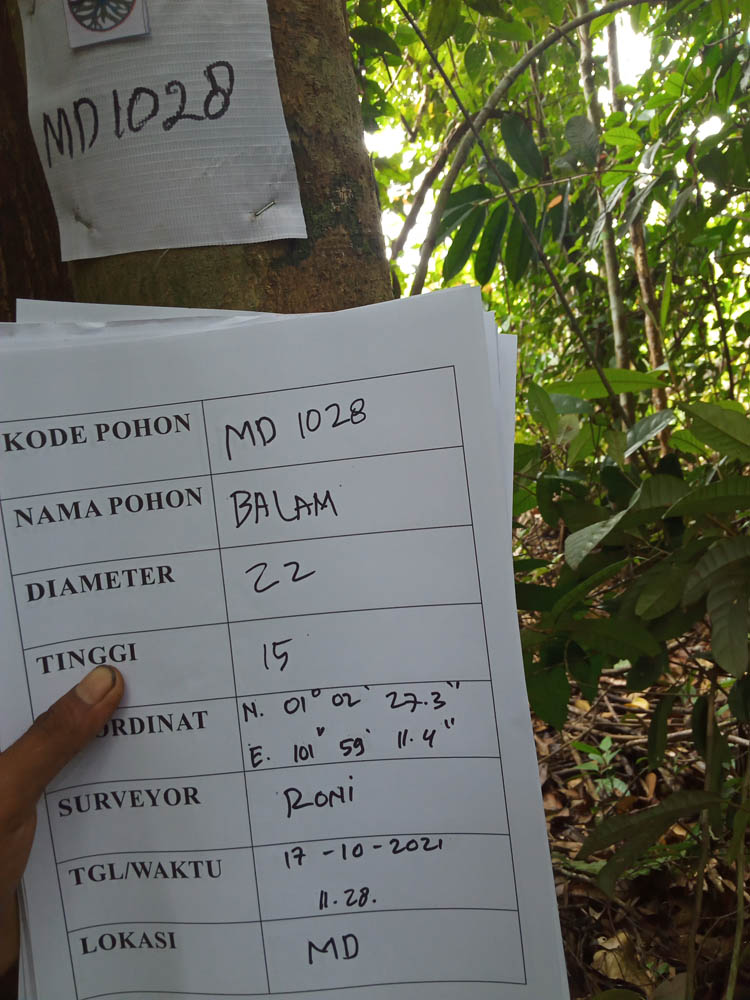 MD 1028
KODE POHON MD 1028
NAMA POHON BALAM
DIAMETER 22
TINGGI 15
ORDINAT N. 01° 02' 27.3"
E. 101° 59' 11.4"
SURVEYOR RONI
TGL/WAKTU 17-10-2021
11.28.
LOKASI MD